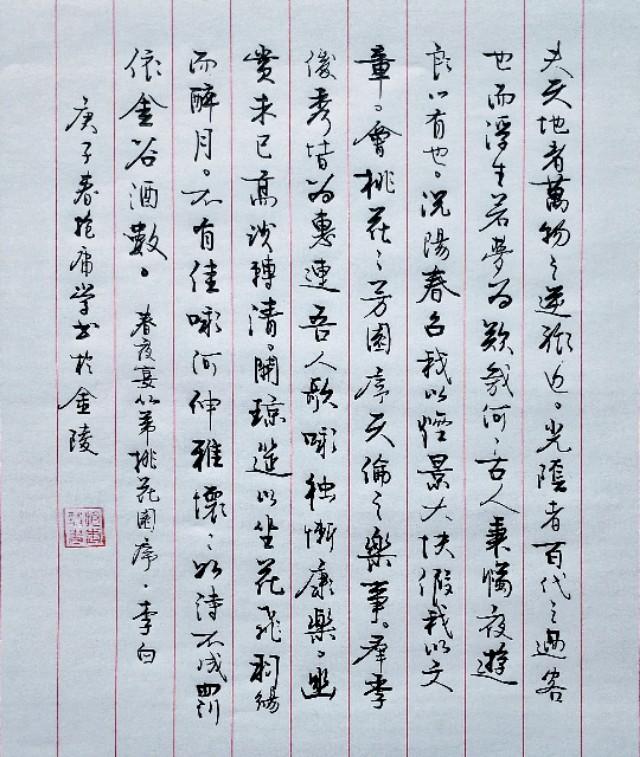 夫天地者萬物之逆旅也。光陰者百代之過客
也而浮生若夢为歡幾何、古人秉燭夜遊
良以有也。況陽春召我以煙景大塊假我以文
章。會桃花之芳園序天倫之樂事。群季
俊秀皆为惠連吾人歌咏獨慚康樂。幽
賞未已高談轉清。開瓊筵以坐花飛羽觴
而醉月。不有佳咏何伸雅懷、如詩不成罰
依金谷酒數。春夜宴從弟桃花園序·李白
庚子春抱庸学书於金陵